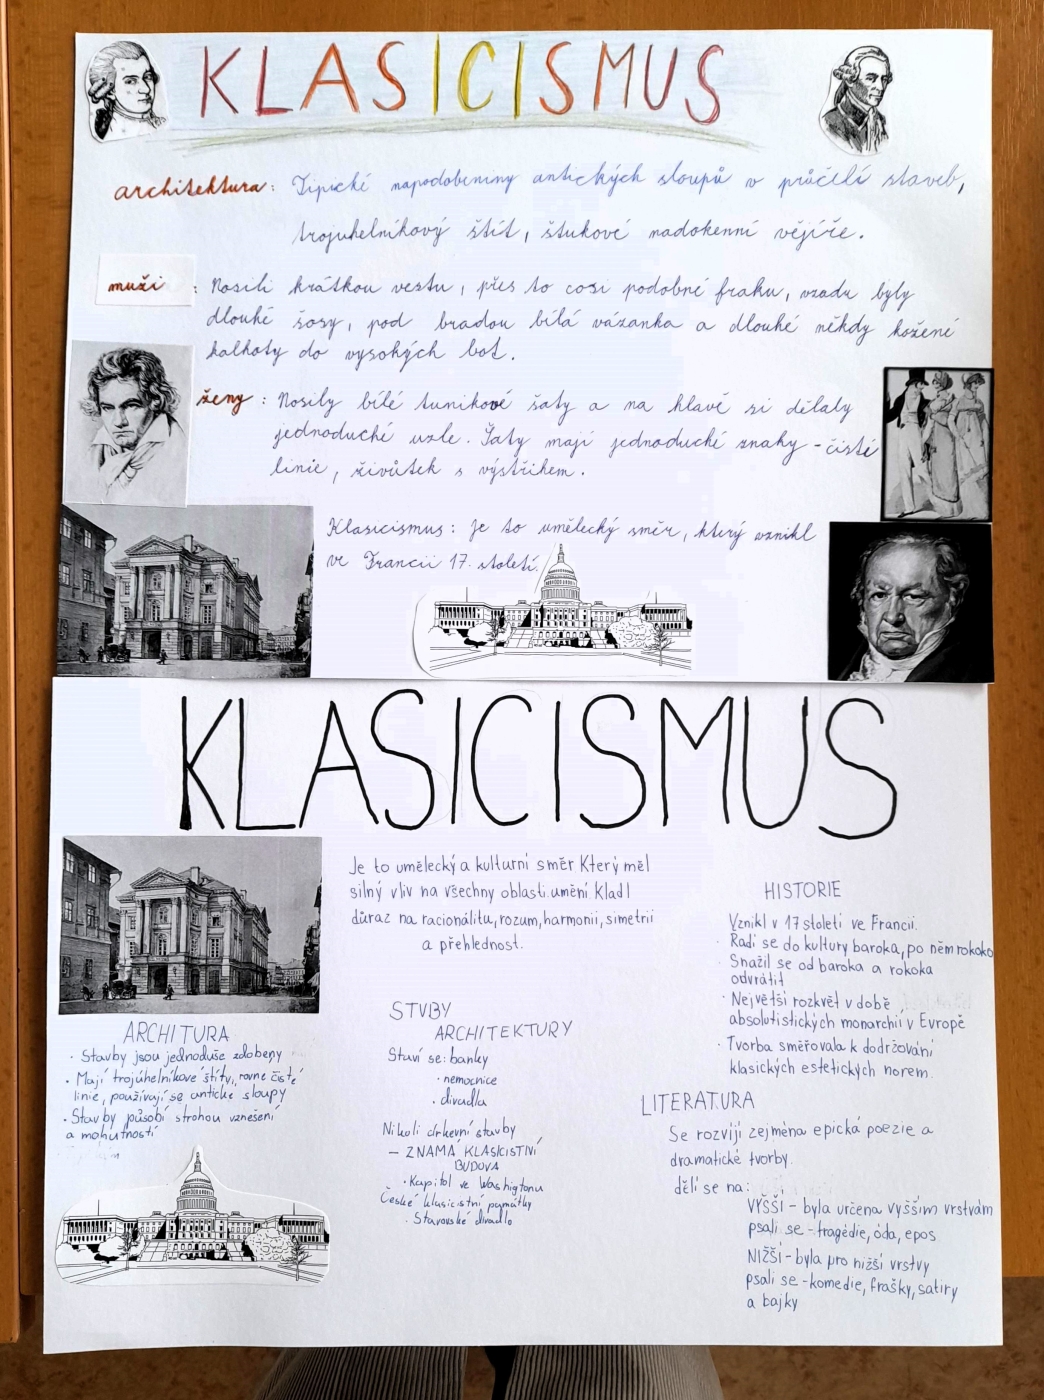 KLASICISMUS
architektura: Tipické napodobeniny antických sloupů v průčelí staveb,
trojuhelníkový štít, štukové nadokenní vějíře.
muži : Nosili krátkou vestu, přes to cosi podobné fraku, vzadu byly
dlouhé šosy, pod bradou bílá vázanka a dlouhé někdy kožené
kalhoty do vysokých bot.
ženy : Nosily bílé tunikové šaty a na hlavě si dělaly
jednoduché uzle. Šaty mají jednoduché znaky - čisté
linie, živůtek s výstřihem.
Klasicismus: je to umělecký směr, který vznikl
ve Francii 17. století.
KLASICISMUS
Je to umělecký a kulturní směr Který měl
silný vliv na všechny oblasti umění Kladl
důraz na racionálitu, rozum, harmonii, simetrii
a přehlednost.
ARCHITURA
· Stavby jsou jednoduše zdobeny
· Mají trojúhelníkové štíty, rovne čisté
linie, používají se antické sloupy
· Stavby působí strohou vznešení
a mohutností
STVBY
ARCHITEKTURY
Staví se: banky
· nemocnice
· divadla
Nikoli církevní stavby
— ZNAMÁ KLASICISTNÍ
BUDOVA
· Kapitol ve Washigtonu
České klasicistní památky
· Stavovské divadlo
HISTORIE
Vznikl v 17 století ve Francii.
· Radí se do kultury baroka, po něm rokoko
· Snažil se od baroka a rokoka
odvrátit
· Největší rozkvět v době
absolutistických monarchií v Evropě
· Tvorba směřovala k dodržování
klasických estetických norem.
LITERATURA
Se rozvíjí zejména epická poezie a
dramatické tvorby.
dělí se na:
VYŠŠÍ – byla určena vyšším vrstvám
psali se - tragédie, óda, epos
NIŽŠÍ - byla pro nižší vrstvy
psali se - komedie, frašky, satiry
a bajky